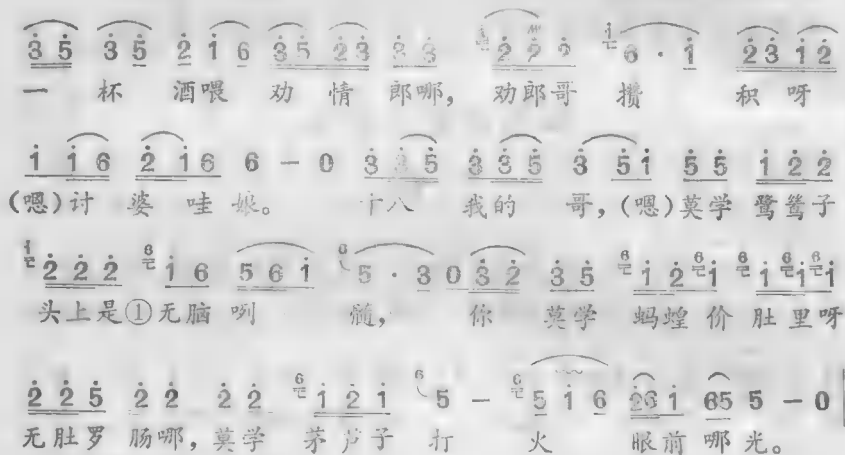 3 5 3 5 2 1 6 3 5 2 3 3 3 1 2 2 2 1 6 · 1 2 3 1 2
一 杯 酒喂 劝 情 郎哪, 劝郎哥 攒 积 呀
1 1 6 2 1 6 6 - 0 3 3 5 3 3 5 3 5 1 5 5 1 2 2
(嗯)讨 婆 哇 娘。 十八 我的 哥,(嗯)莫学 鹭鸶子
1 2 2 2 6 1 6 5 6 1 6 5 · 3 0 3 2 3 5 6 1 2 6 1 6 1 6 1 6 1
头上是①无脑 咧 髓, 你 莫学 蚂蝗 价 肚里呀
2 2 5 2 2 2 2 6 1 2 1 6 5 - 6 5 1 6 2 6 1 6 5 5 - 0
无肚罗 肠哪,莫学 茅芦子 打 火 眼前哪光。